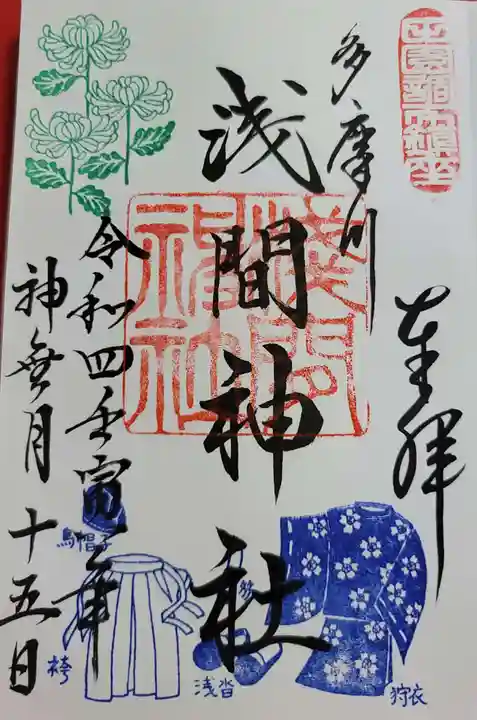 奉拝
多摩川
浅間神社
浅間神社
令和四壬寅年
神無月十五日
烏帽子
袴
浅沓
狩衣